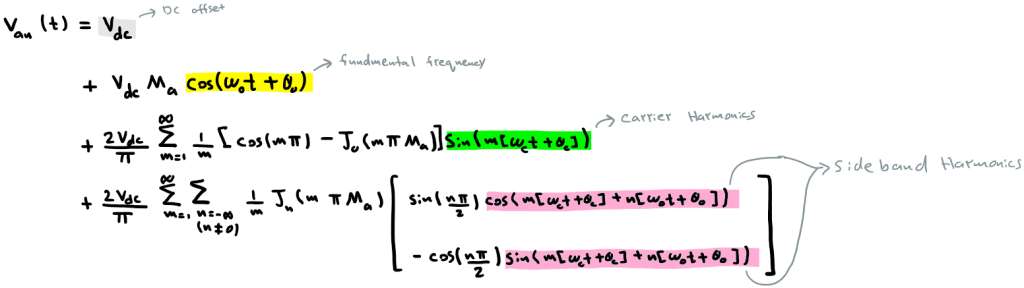 V_an (t) = V_dc → DC offset
+ V_dc M_a cos(ω_o t + θ_o) → fundmental frequency
+ 2V_dc/π ∑_{m=1}^{∞} 1/m [cos(mπ) - J_o(mπ M_a)] sin(m[ω_c t + θ_c]) → Carrier Harmonics
+ 2V_dc/π ∑_{m=1}^{∞} ∑_{n=-∞ (n≠0)} 1/m J_n(m π M_a) [ sin(nπ/2) cos(m[ω_c t + θ_c] + n[ω_o t + θ_o]) → Sideband Harmonics
- cos(nπ/2) sin(m[ω_c t + θ_c] + n[ω_o t + θ_o]) ]